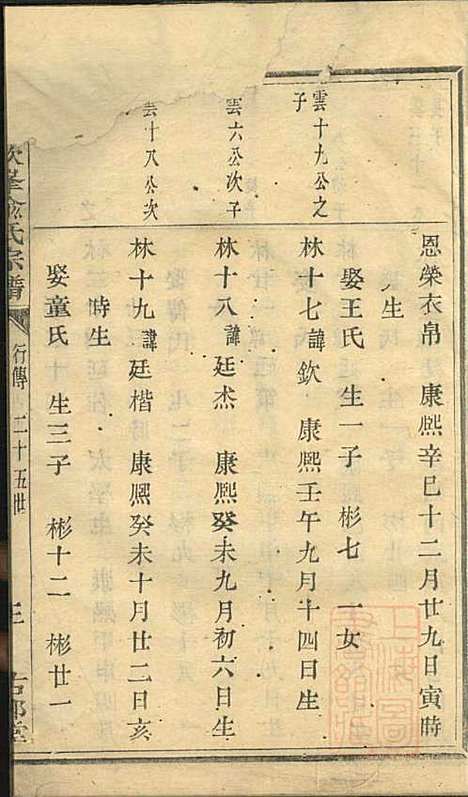 恩榮衣帛 康熙辛巳十二月廿九日寅時
生
娶王氏 生一子 彬七 一女
雲十九公之
子
林十七諱欽 康熙壬午九月十四日生
雲六公次子
林十八諱廷杰 康熙癸未九月初六日生
雲十八公次
林十九諱廷楷 康熙癸未十月廿二日亥
時生
娶童氏 生三子 彬十二 彬廿一
峯俞氏宗譜 行傳 二十五世